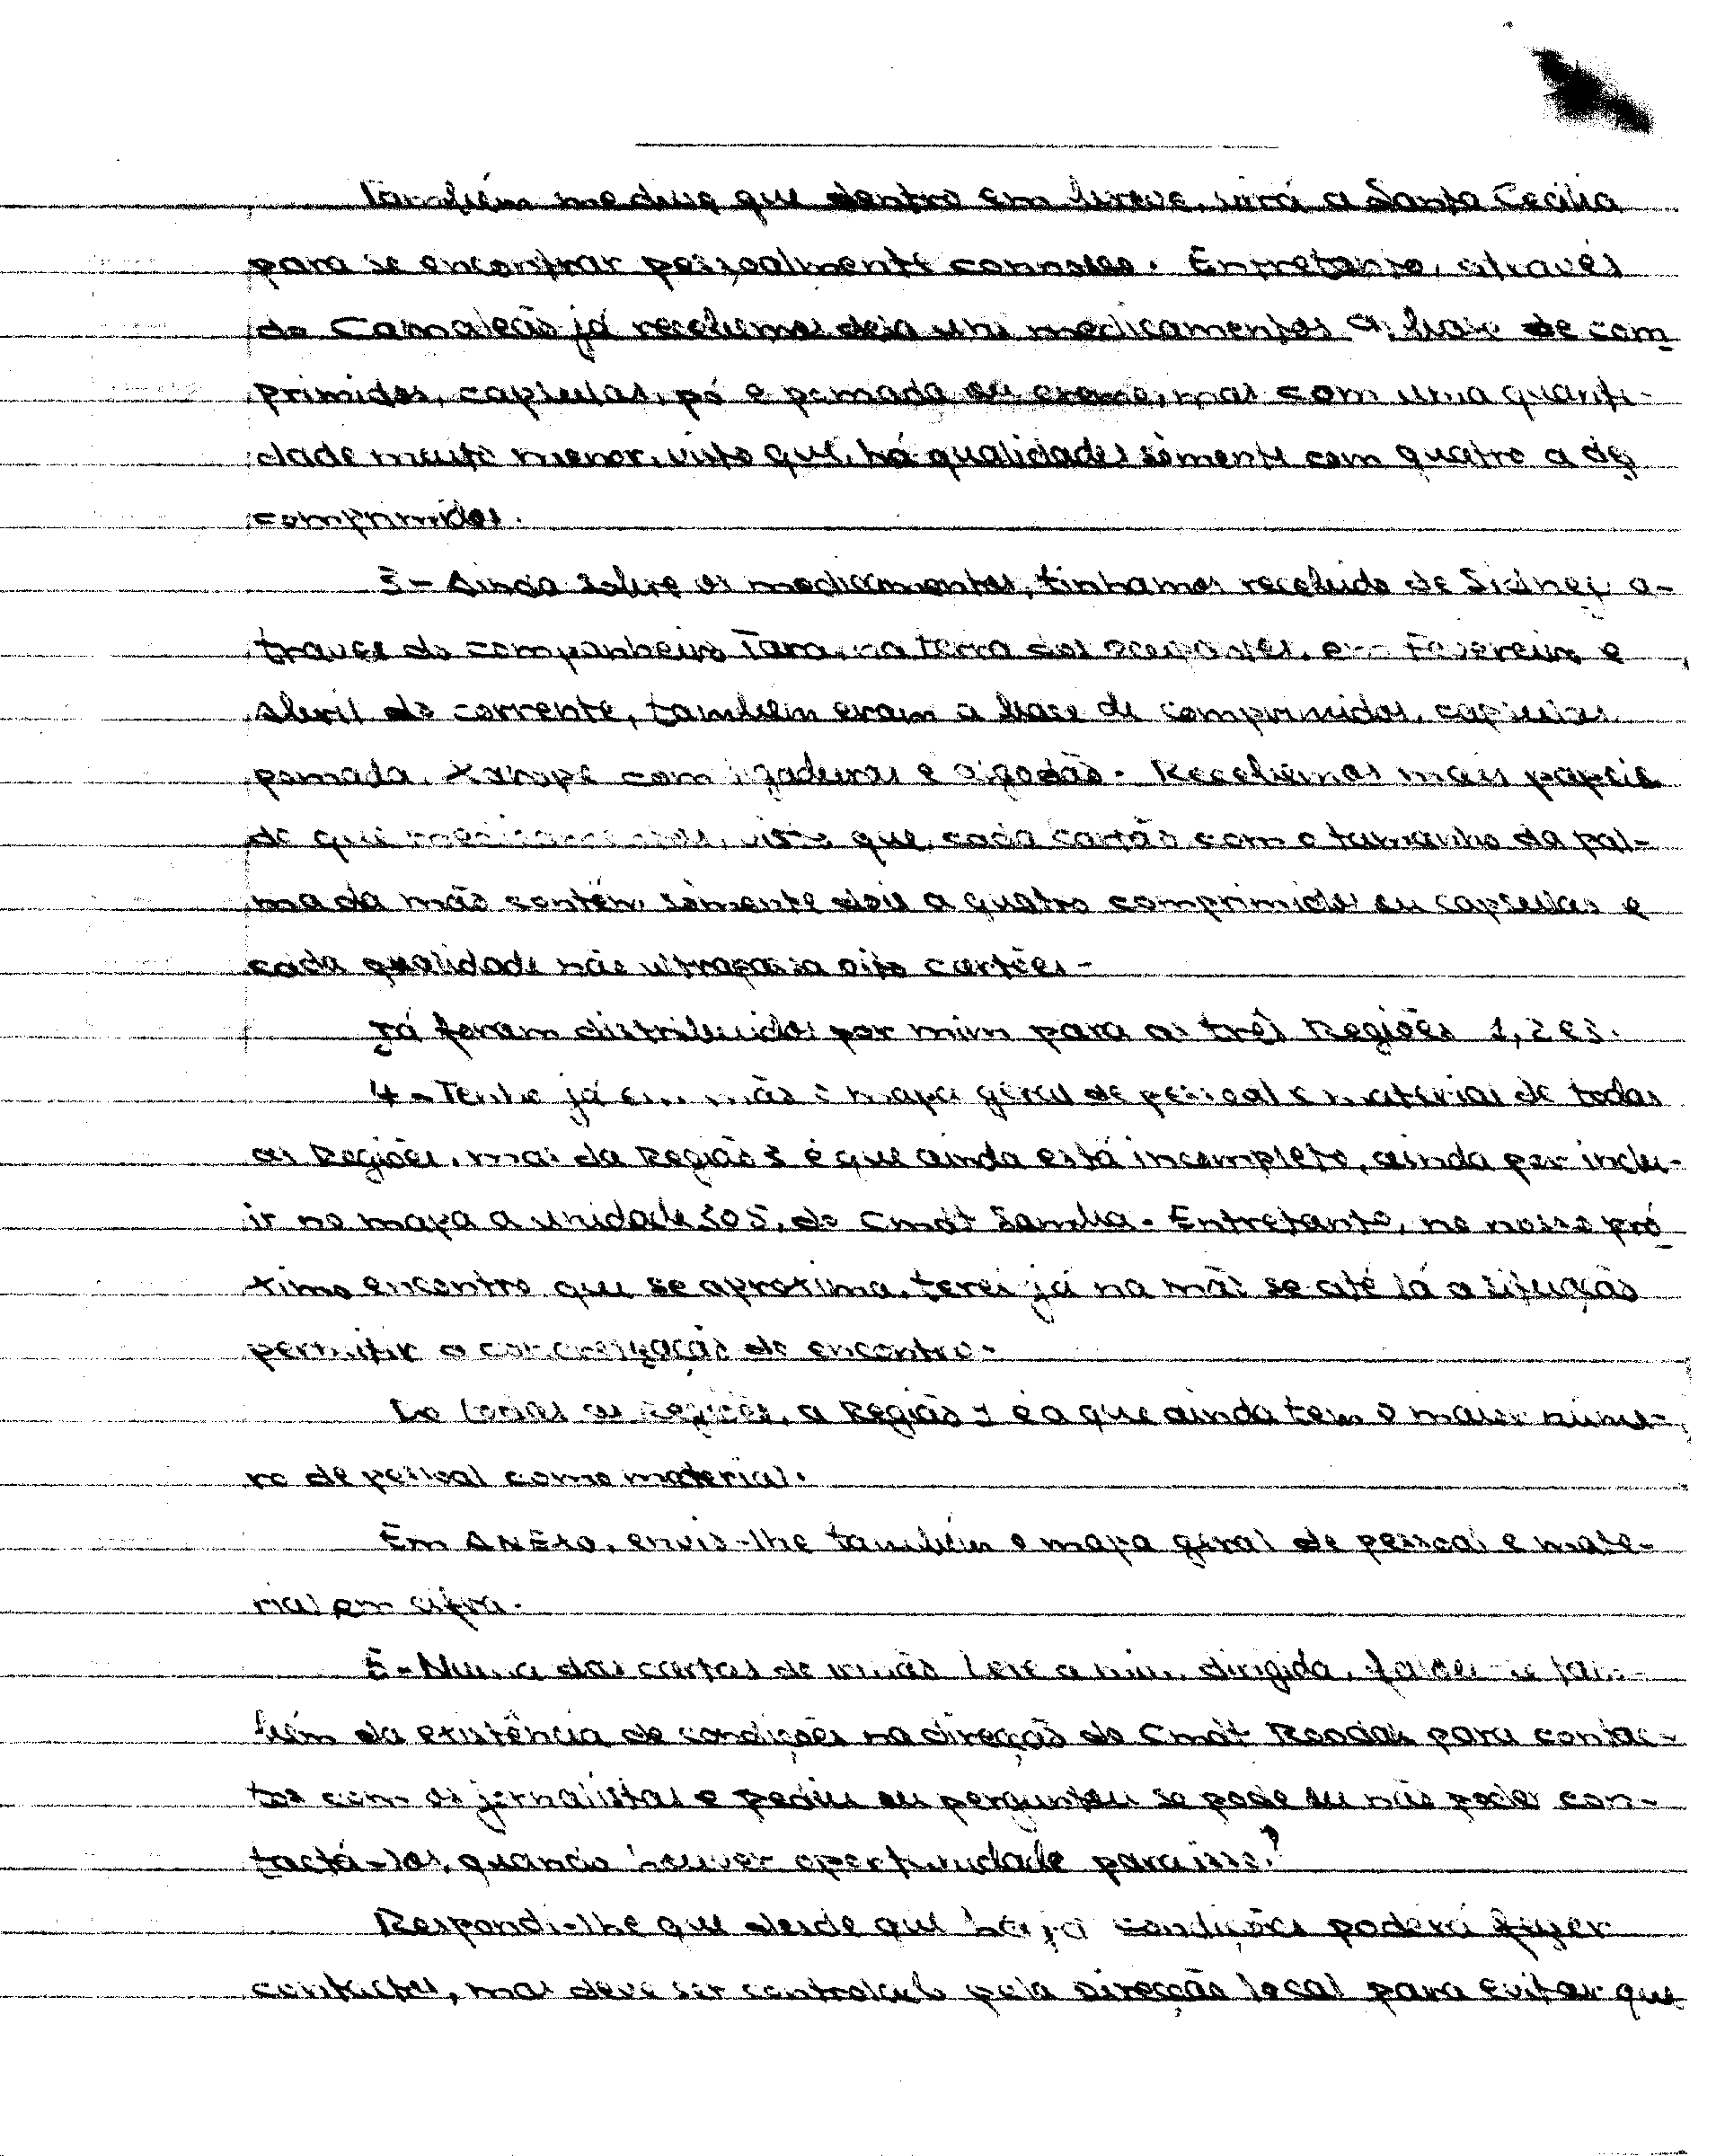 Também me disse que dentro em breve, virá a Santa Cecilia
para se encontrar pessoalmente connosco. Entretanto, através
do Camaleão já recebemos dois uns medicamentos a base de com
primidos, capsulas, pó e pomada ou creme, mas com uma quanti-
dade muito menor, visto que, há qualidades sòmente com quatro a dez
comprimidos.
3 - Ainda sobre os medicamentos, tinhamos recebido de Sidney a-
traves do companheiro Tara, na terra dos ocupantes, em Fevereiro e
Abril do corrente, também eram a base de comprimidos, capsulas
pomada, xarope com ligaduras e algodão. Recebemos mais papeis
do que medicamentos, visto que, cada cartão com o tamanho da pal-
ma da mão contém sòmente dois a quatro comprimidos ou capsulas e
cada qualidade não ultrapassa oito cartões -
Já foram distribuidos por mim para as três Regiões 1, 2 e 3.
4 - Tenho já em mão o mapa geral de pessoal e material de todas
as Regiões, mas da Região 3 é que ainda está incompleto, ainda por inclu-
ir no mapa a unidade 305, do Cmdt Samba. Entretanto, no nosso pró
ximo encontro que se aproxima, terei já na mão se até lá a situação
permitir a concretização do encontro.
De todas as Regiões, a Região 1 é a que ainda tem o maior núme-
ro de pessoal como material.
Em ANEXO, envio-lhe também o mapa geral de pessoal e mate-
rial em cifra.
5 - Numa das cartas de irmão Lere a mim dirigida, falou-se tam-
bém da existência de condições na direcção do Cmdt Roodak para contac-
tos com os jornalistas e pediu ou perguntou se pode ou não poder con-
tactá-los, quando houver oportunidade para isso?
Respondi-lhe que desde que haja condições poderá fazer
contactos, mas deve ser controlado pela Direcção local para evitar que